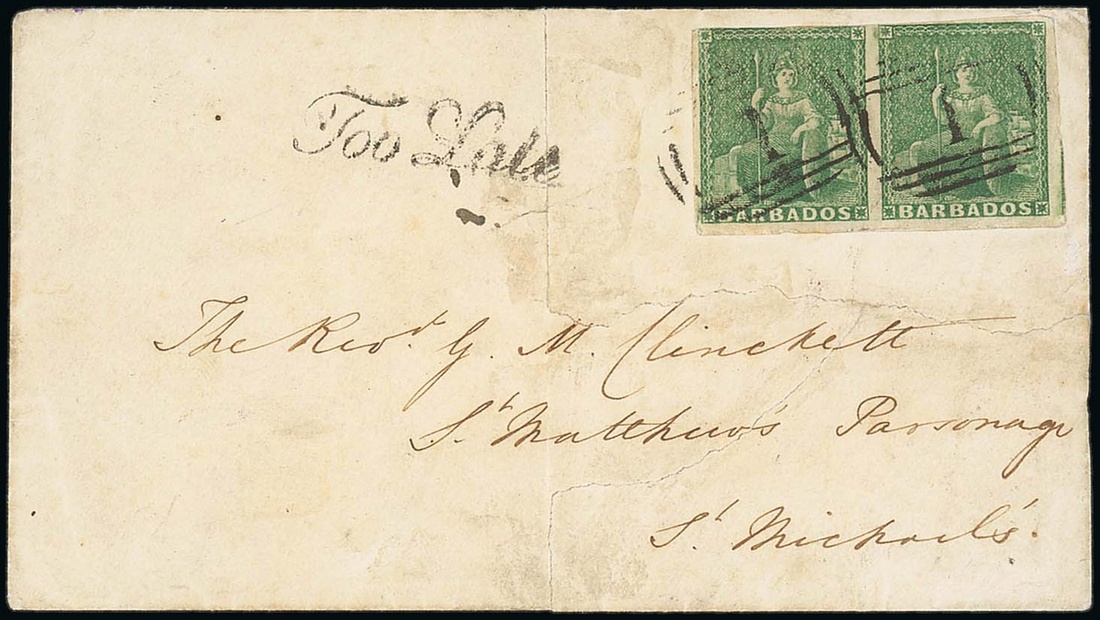 Too Late
1 1
BARBADOS BARBADOS
The Revd. G. M. Clinckett
St Matthew's Parsonage
St Michael's.